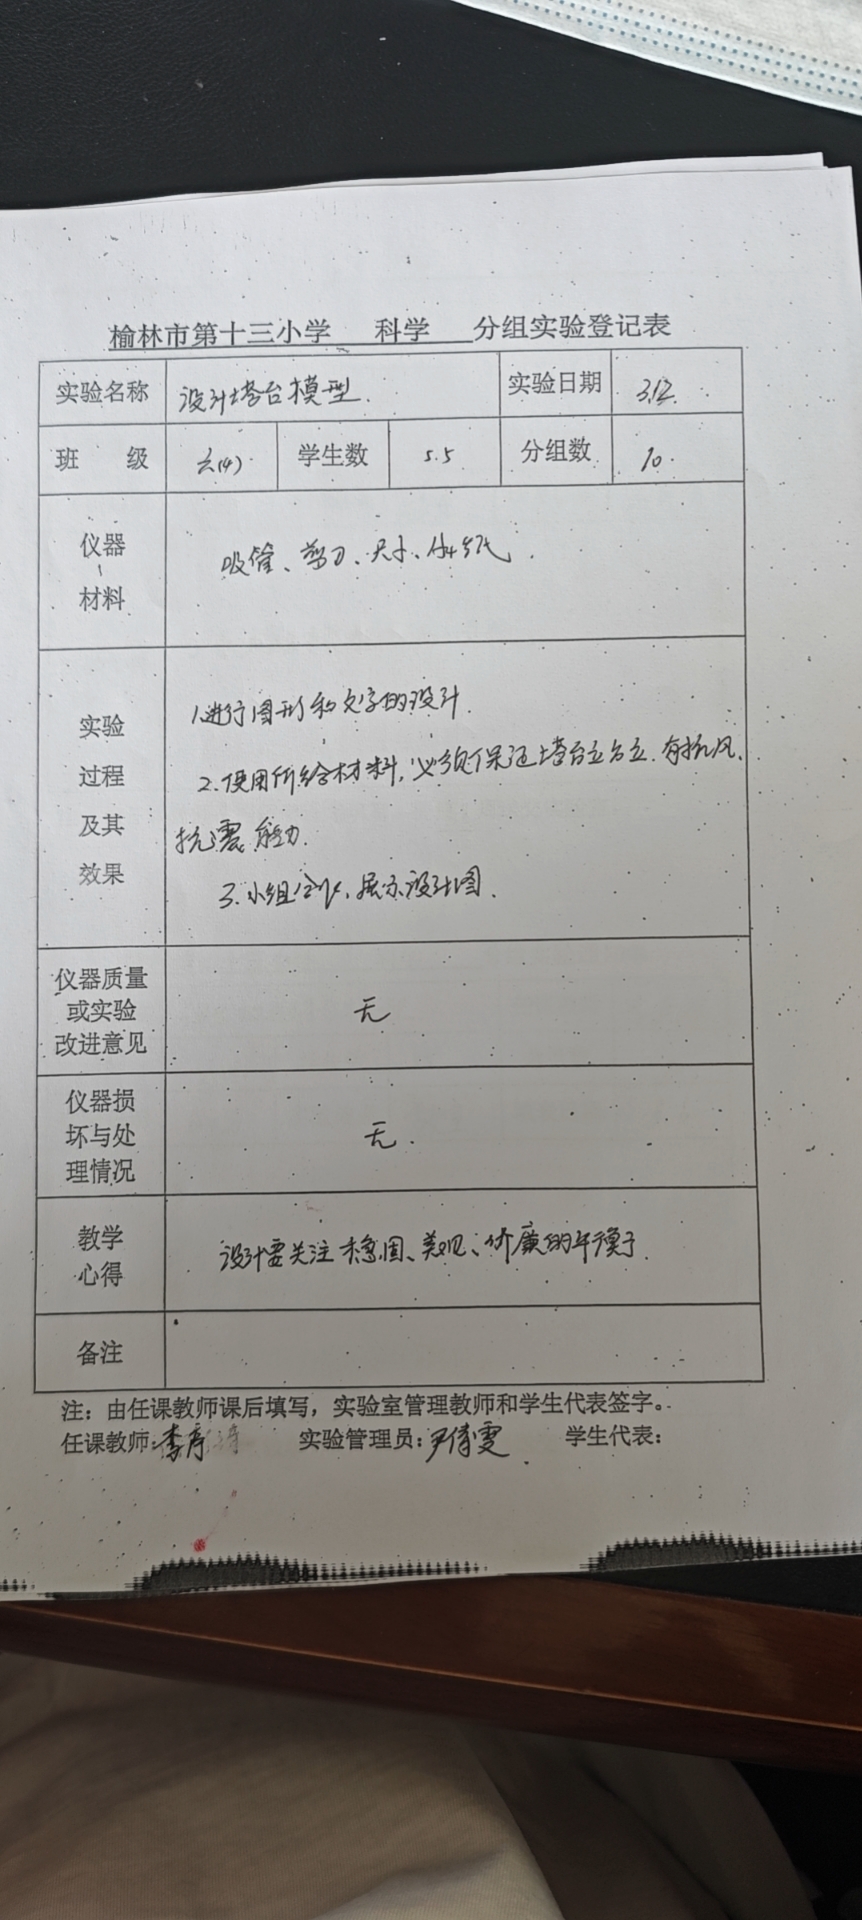 榆林市第十三小学 科学 分组实验登记表
实验名称 设计塔台模型. 实验日期 3.12.
班 级 六(4) 学生数 55 分组数 10.
仪器、材料 吸管、剪刀、尺子、A4纸.
实验过程及其效果
1.进行图形和文字的设计.
2.使用所给材料,必须保证塔台立 立.有抗风、
抗震能力.
3.小组合作,展示设计图.
仪器质量或实验改进意见 无
仪器损坏与处理情况 无.
教学心得 设计需关注稳固、美观、价廉的平衡.
备注
注:由任课教师课后填写,实验室管理教师和学生代表签字。
任课教师:李彦 实验管理员:尹倩雯 学生代表: